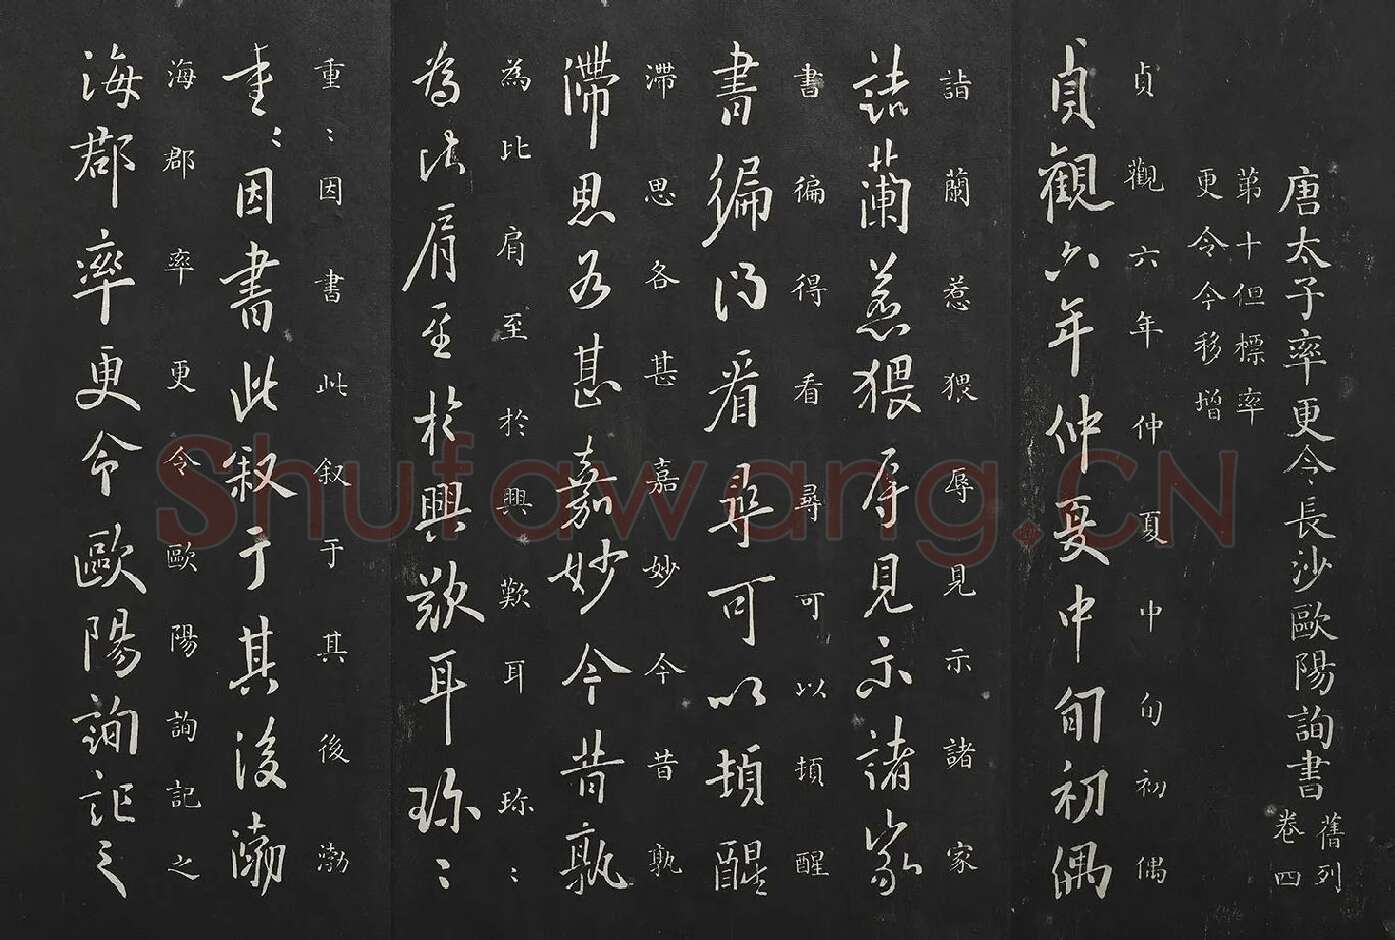 唐太子率更令長沙歐陽詢書
舊列
卷四
第十但標率
更令今移增
貞觀六年仲夏中旬初偶
貞觀六年仲夏中旬初偶
詣蘭惹猥辱見示諸家
詣蘭惹猥辱見示諸家
書徧得看尋可以頓醒
書徧得看尋可以頓醒
滯思各甚嘉妙今昔孰
滯思各甚嘉妙今昔孰
為比肩至於興歎耳珎〻
為比肩至於興歎耳珎〻
重〻因書此叙于其後渤
重〻因書此叙于其後渤
海郡率更令歐陽詢記之
海郡率更令歐陽詢記之
Shufawang.CN